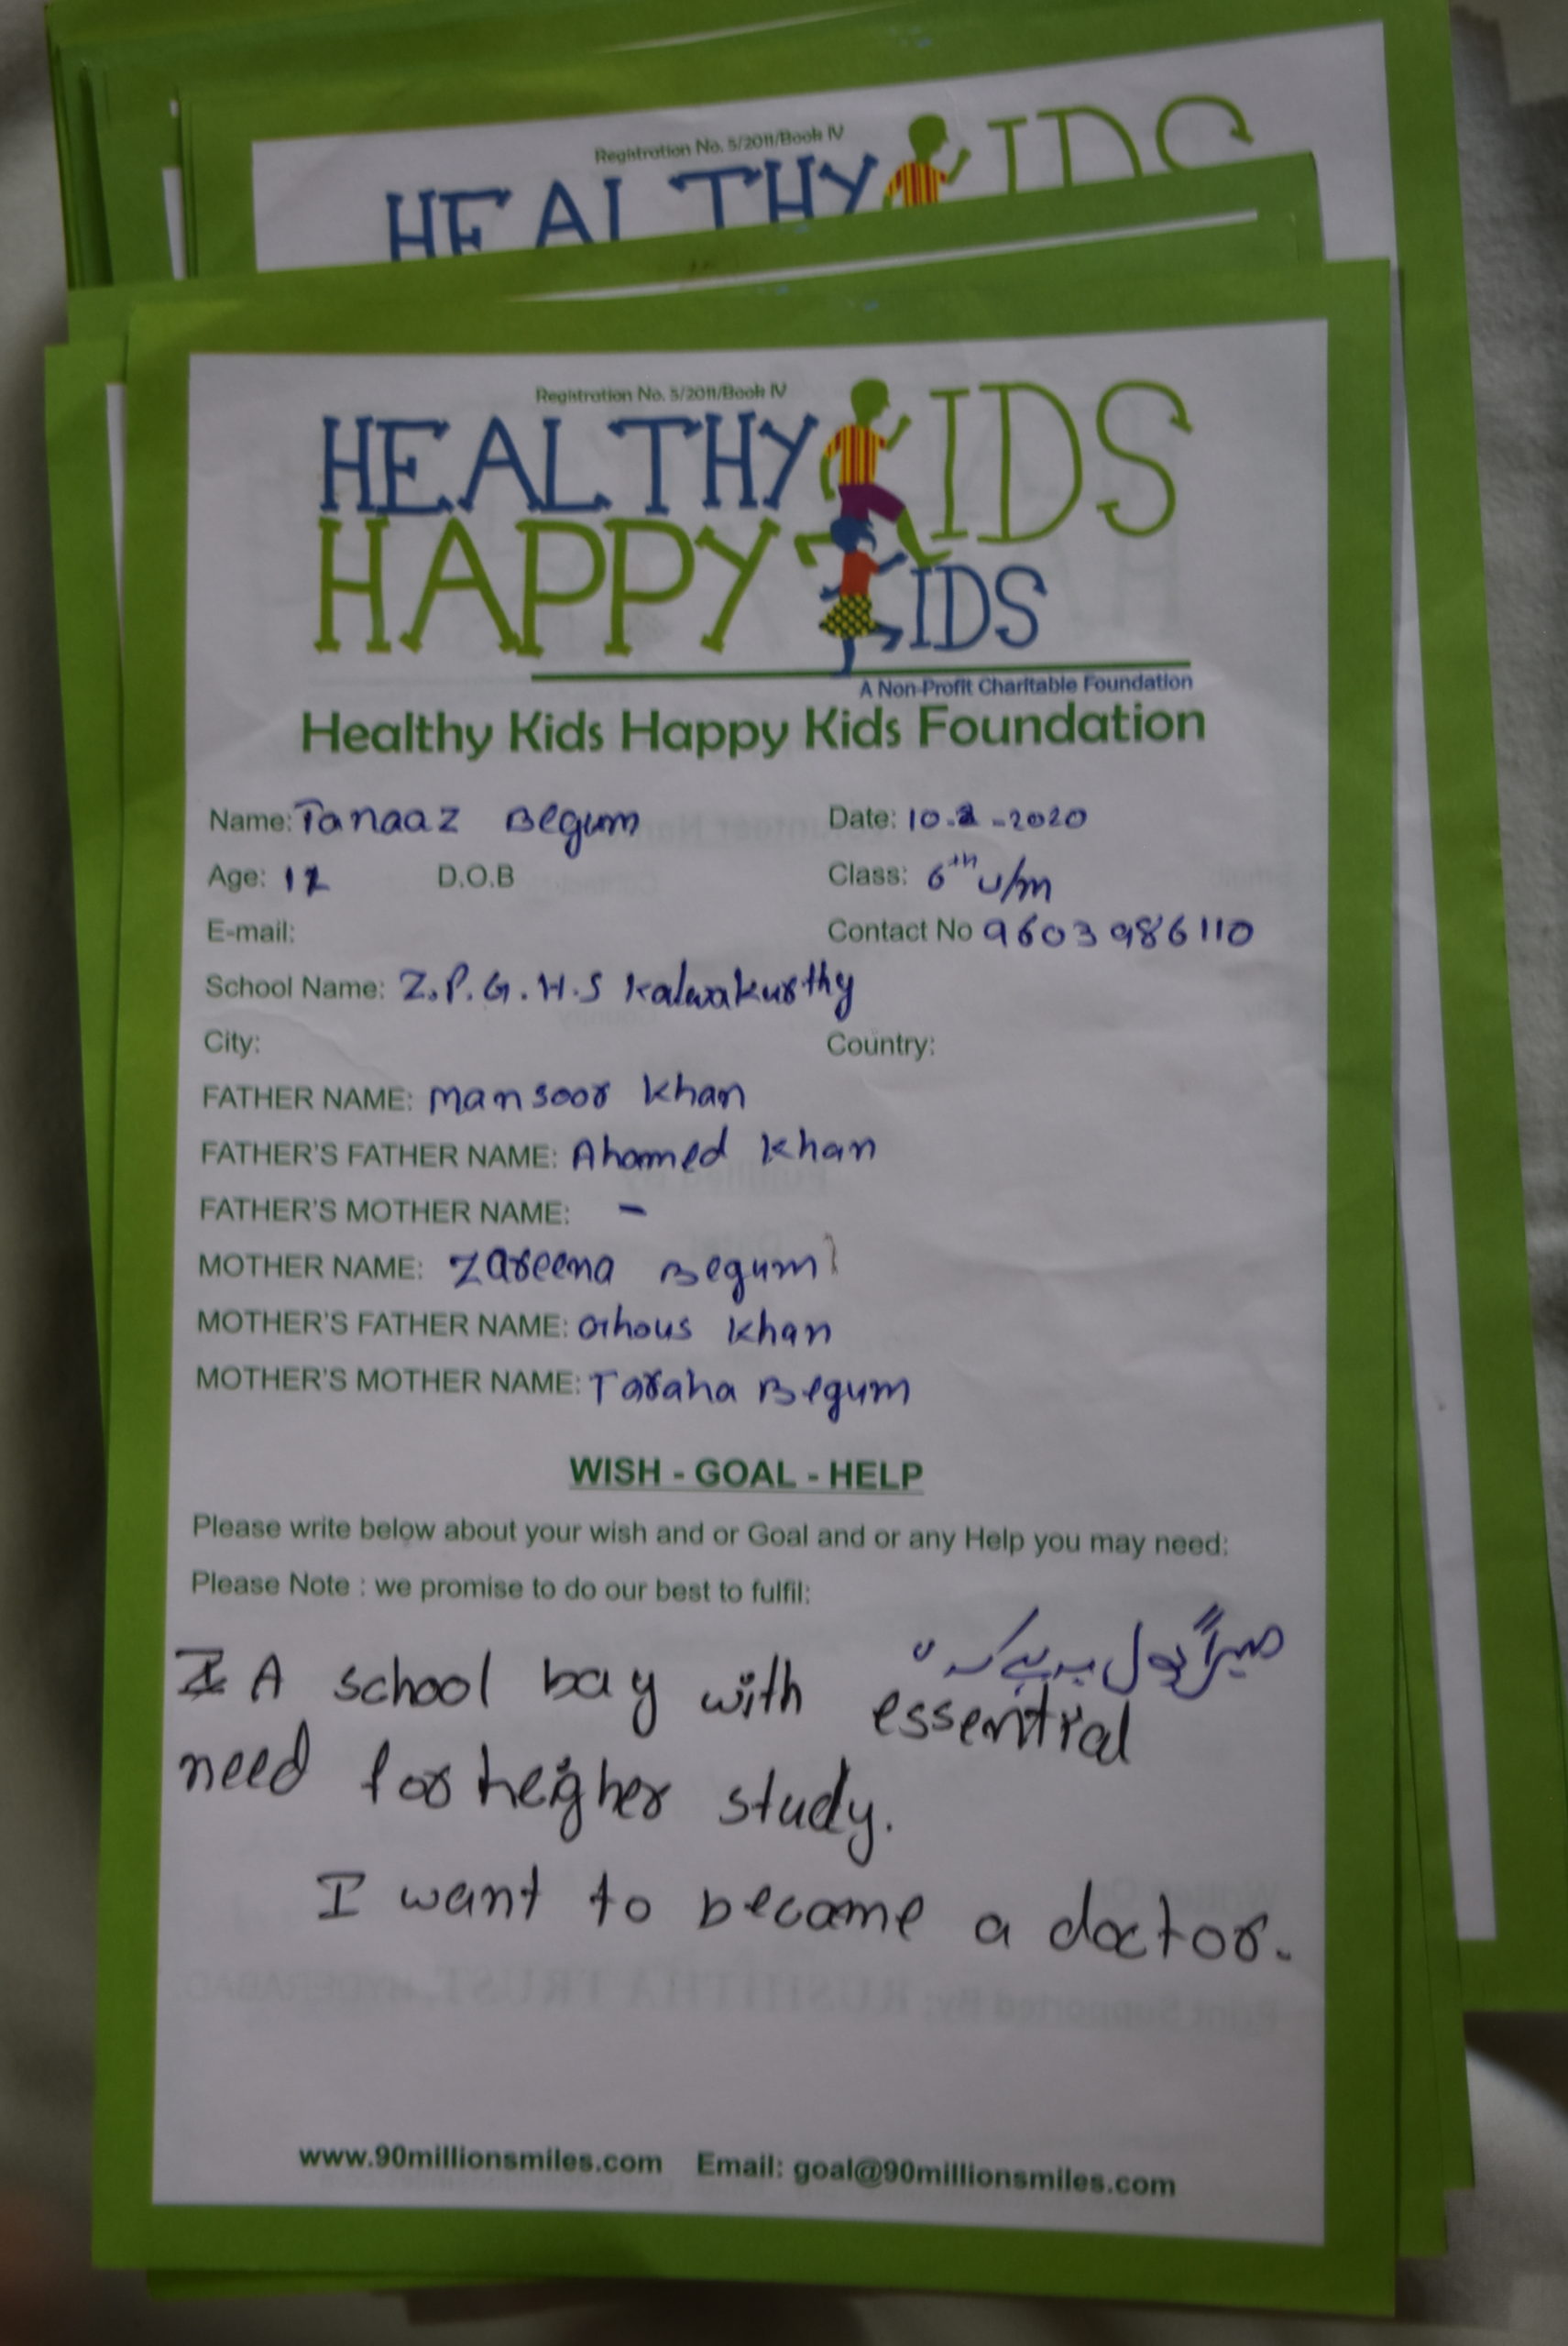 Registration No. 5/2011/Book IV
HEALTHY KIDS
Registration No. 5/2011/Book IV
HEALTHY KIDS
HAPPY KIDS
A Non-Profit Charitable Foundation
Healthy Kids Happy Kids Foundation
Name: Tanaaz Begum Date: 10-2-2020
Age: 12 D.O.B Class: 6th u/m
E-mail: Contact No 9603986110
School Name: Z.P.G.H.S Kalwakurthy
City: Country:
FATHER NAME: Mansoor Khan
FATHER'S FATHER NAME: Ahamed Khan
FATHER'S MOTHER NAME: -
MOTHER NAME: Zareena Begum
MOTHER'S FATHER NAME: Ghous Khan
MOTHER'S MOTHER NAME: Taraha Begum
WISH - GOAL - HELP
Please write below about your wish and or Goal and or any Help you may need:
Please Note : we promise to do our best to fulfil:
میرا گول یہ ہے کہ
A school bag with essential
need for heigher study.
I want to became a doctor.
www.90millionsmiles.com Email: goal@90millionsmiles.com